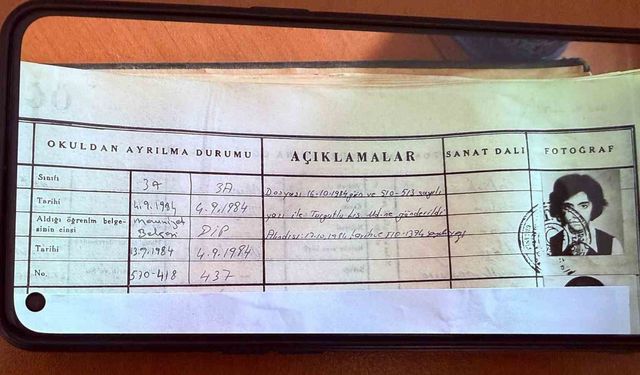 OKULDAN AYRILMA DURUMU
AÇIKLAMALAR
SANAT DALI
FOTOĞRAF
Sınıfı 3A 3A
Tarihi 4.9.1984 4.9.1984
Aldığı öğrenim belge-
sinin cinsi Mezuniyet Belgesi DİP
Tarihi 13.9.1984 4.9.1984
No. 570-418 437
Dosyası 16.10.1984 gün ve 510-513 sayılı
yazı ile Turgutlu Lis. Md.ne gönderildi